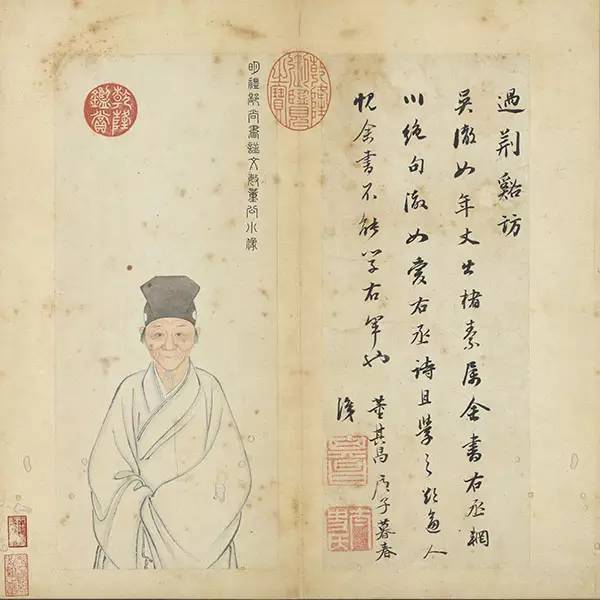 過荆谿訪
吳澈如年丈出楮素屬余書右丞輞
川絕句澈如愛右丞詩且學之欲逼人
愧余書不能學右軍也
董其昌
子暮春
識
乾隆御覽之寶
明禮部尚書諡文敏董公小像
乾隆鑑賞